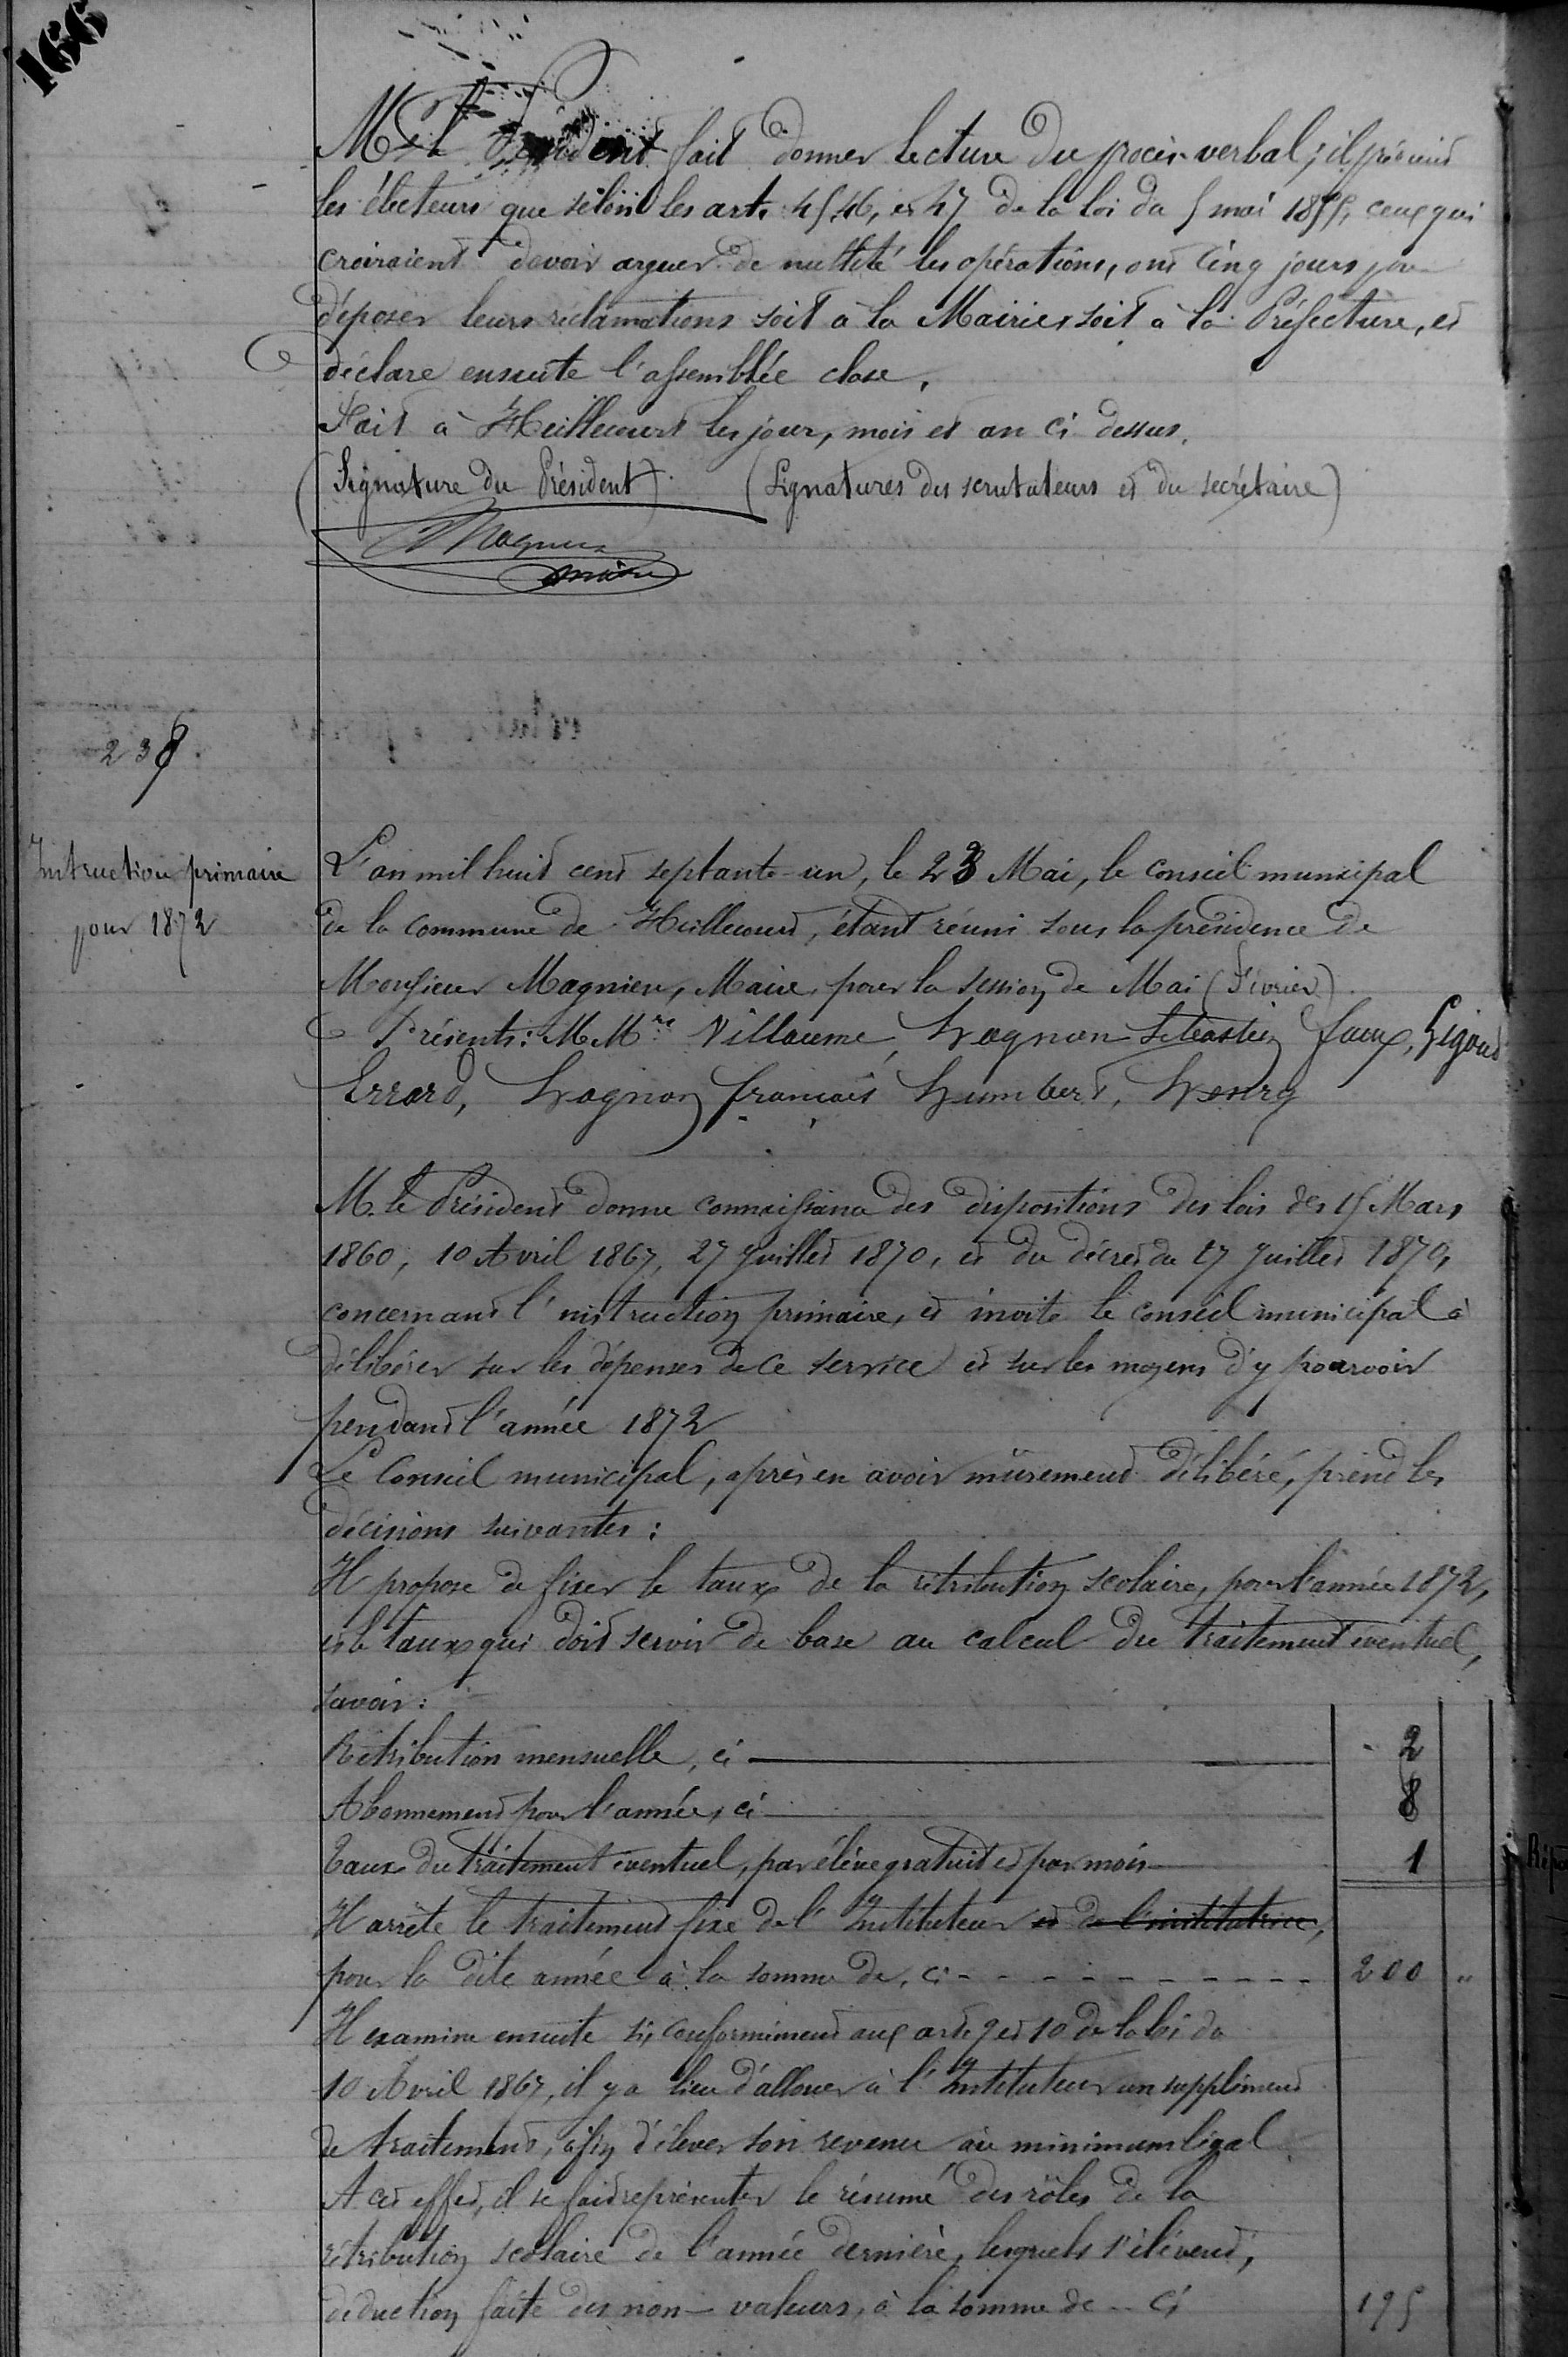 166
M. le Président fait donner lecture du procès-verbal; il prévient
les électeurs que selon les art. 45, 46, et 47 de la loi du 5 mai 1855, ceux qui
croiraient devoir arguer de nullité les opérations, ont cinq jours pour
déposer leurs réclamations soit à la Mairie, soit à la Préfecture, et
déclare ensuite l'assemblée close.
Fait à Heillecourt les jour, mois et an ci-dessus.
(Signature du Président) (Signatures des scrutateurs et du secrétaire)
Magnien
maire
238.
Intruction primaire
pour 1872
L'an mil huit cent septante-un, le 23 Mai, le conseil municipal
de la commune de Heillecourt, étant réuni sous la présidence de
Monsieur Magnien, Maire, pour la session de Mai (Février).
Présents: M.Mrs Villaume, Hagnon Sébastien faux, Gigout
Errard, Hagnon francais Humbert, Henry
M. le Président donne connaissance des dispositions des lois des 15 Mars
1860, 10 Avril 1867, 27 Juillet 1870, et du décret du 27 Juillet 1870,
concernant l'instruction primaire, et invite le conseil municipal à
délibérer sur les dépenses de ce service et sur les moyens d'y pourvoir
pendant l'année 1872
Le Conseil municipal, après en avoir mûrement délibéré, prend les
décisions suivantes:
Il propose de fixer le taux de la rétribution scolaire, pour l'année 1872,
et le taux qui doit servir de base au calcul du traitement éventuel,
savoir:
Rétribution mensuelle, ci 2
Abonnement pour l'année, ci 8
Taux du traitement éventuel, par élève gratuit et par mois 1
Il arrête le traitement fixe de l'Instituteur et de l'institutrice,
pour la dite année à la somme de, ci - - - - - - - - - - 200 "
Il examine ensuite si, conformément aux art. 9 et 10 de la loi du
10 Avril 1867, il y a lieu d'allouer à l'Instituteur un supplément
de traitement, afin d'élever son revenu au minimum légal.
A cet effet, il se fait représenter le résumé des rôles de la
rétribution scolaire de l'année dernière, lesquels s'élèvent,
déduction faite des non-valeurs, à la somme de - ci 195